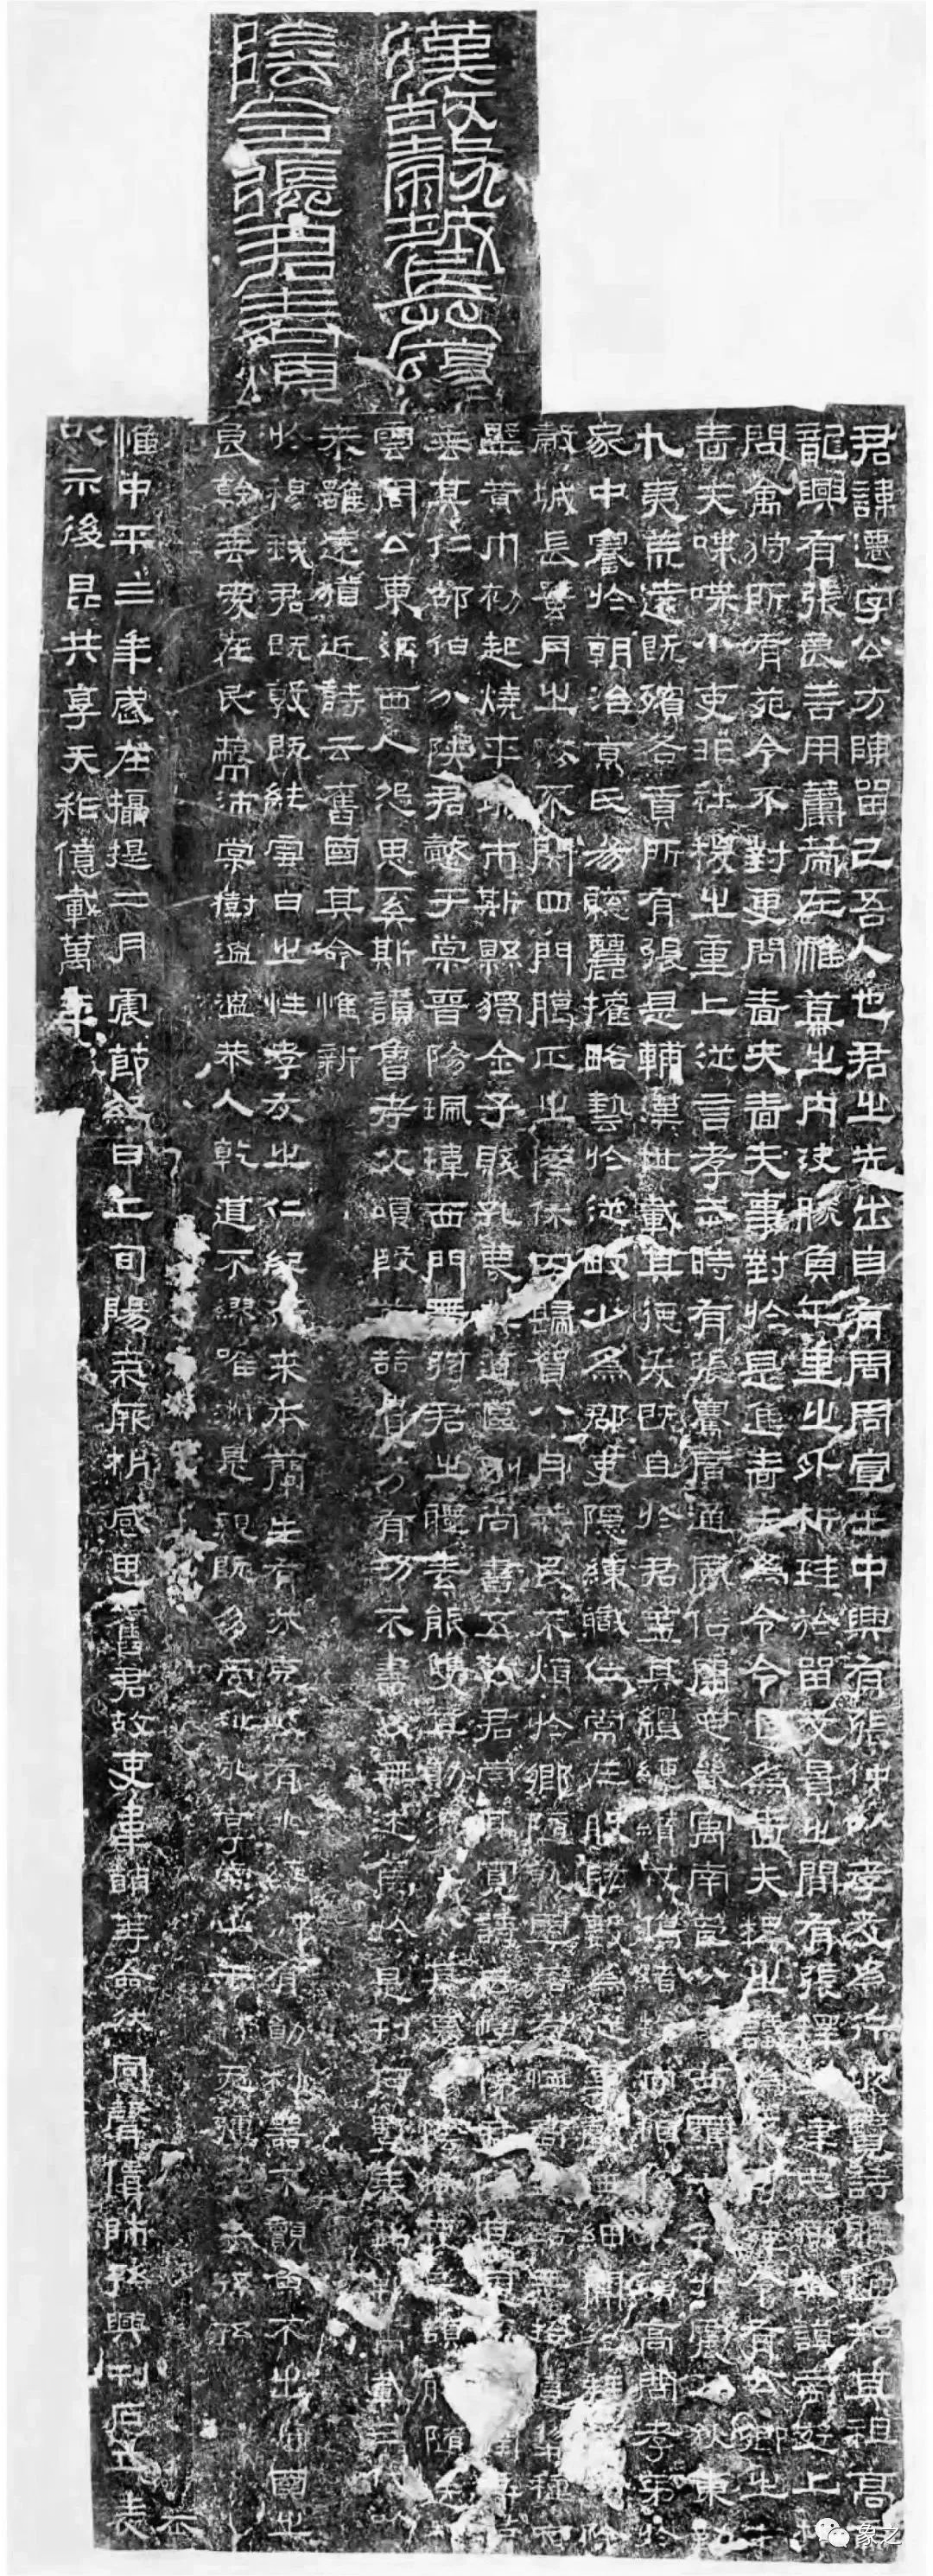 漢故穀城長蕩
陰令張君表頌
君諱遷字公方陳留己吾人也君之先出自有周周宣王中興有張仲以孝友為行披覽詩雅煥知其祖高
龍興有張良善用籌策在帷幕之內決勝負千里之外析珪於留文景之間有張釋之建忠弼之謨帝遊上林
問禽狩所有苑令不對更問嗇夫嗇夫事對於是進嗇夫為令令退為嗇夫釋之議為不可苑令有公卿之
嗇夫喋喋小吏非社稷之重上從言孝武時有張騫廣通風俗開定畿寓南苞八蠻西羈六戎北震五狄東勤
九夷荒遠既殯各貢所有張是輔漢世載其德爰既且於君蓋其繵縺纘戎鴻緒牧守相係不殞高問孝弟於
家中謇於朝治京氏易聰麗權略藝於從畋少為郡吏隱練職位常在股肱數為從事聲無細聞徵拜郎中除
穀城長蠶月之務不閉四門臘正之僚休囚歸賀八月筭民不煩於鄉隨就虛落存恤高年路無拾遺犁種宿
野黃巾初起燒平城市斯縣獨全子賤孔蔑其道區別尚書五教君崇其寬詩云愷悌君隆其恩東里潤色君
垂其仁邵伯分陝君懿于棠晉陽珮瑋西門帶弦君之體素能雙其勛流化八基遷蕩陰令吏民頡頏隨送如
雲周公東征西人怨思奚斯讚魯考父頌殷前喆遺芳有功不書後無述焉於是刊石豎表銘勒萬載三代以
來雖遠猶近詩云舊國其命惟新
於穆我君既敦既純雪白之性孝友之仁紀行來本蘭生有芬克岐有兆綏御有勛利器不覿魚不出淵國之
良幹垂愛在民蔽沛棠樹溫溫恭人乾道不繆唯淑是親既多受祉永享南山干祿無疆子子孫孫
惟中平三年歲在攝提二月震節紀日上旬陽氣厥析感思舊君故吏韋萌等僉然同聲賃師孫興刊石立表
以示後昆共享天祚億載萬年
象之